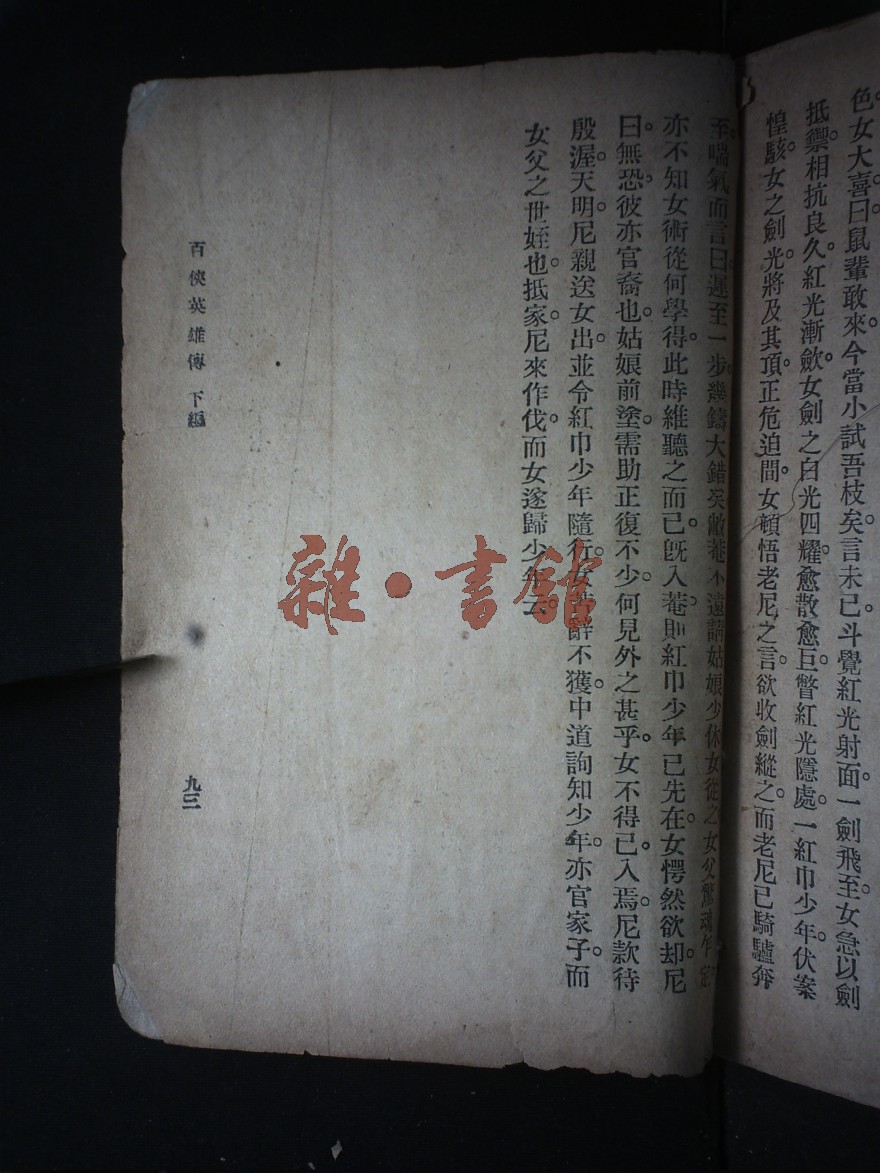 色。女大喜曰。鼠輩敢來。今當小試吾枝矣。言未已。斗覺紅光射面。一劍飛至。女急以劍
抵禦。相抗良久。紅光漸歛。女劍之白光四耀。愈散愈巨。瞥紅光隱處。一紅巾少年。伏案
惶駭。女之劍光。將及其頂。正危迫間。女頓悟老尼之言。欲收劍縱之。而老尼已騎驢奔
至。喘氣而言曰。遲至一步。幾鑄大錯矣。敝菴不遠。請姑娘少休。女從之。女父驚魂乍定。
亦不知女術從何學得。此時維聽之而已。旣入菴。則紅巾少年已先在。女愕然欲却。尼
曰。無恐。彼亦官裔也。姑娘前塗。需助正復不少。何見外之甚乎。女不得已入焉。尼款待
殷渥。天明。尼親送女出。並令紅巾少年隨行。女苦辭不獲。中道詢知少年。亦官家子。而
女父之世姪也。抵家。尼來作伐。而女遂歸少年云。
百俠英雄傳 下編
九三
雜·書館